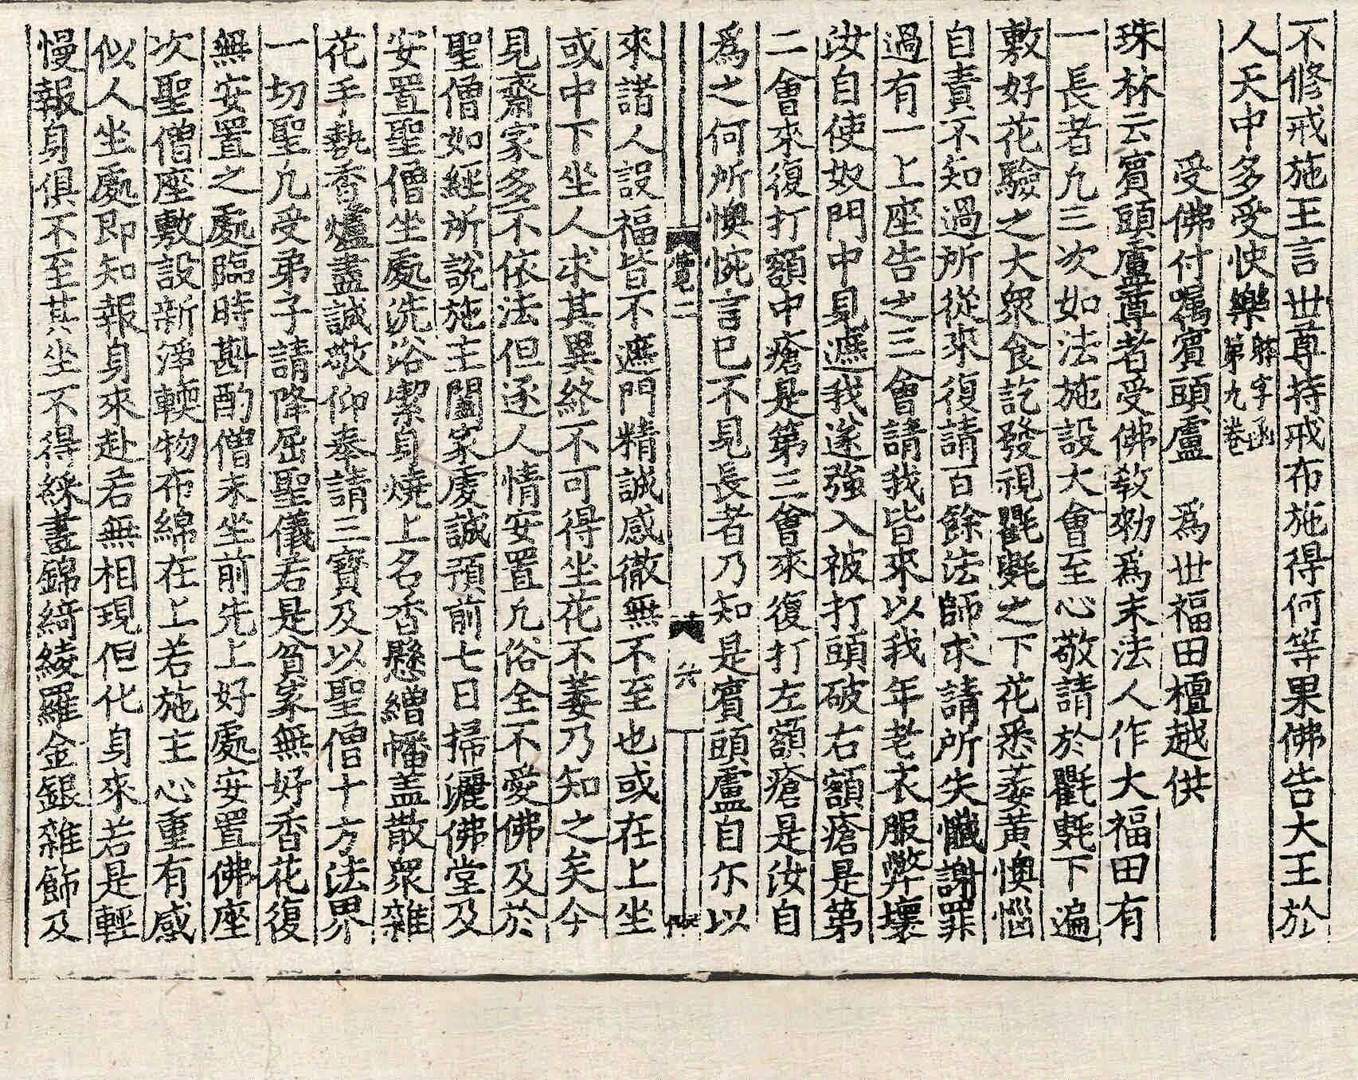 不修戒施王言世尊持戒布施得何等果佛告大王於
人天中多受快樂
第九卷
受佛付囑賓頭盧　為世福田檀越供
珠林云賓頭盧尊者受佛教勑為末法人作大福田有
一長者凡三次如法施設大會至心敬請於氍毹下遍
敷好花驗之大衆食訖發視氍毹之下花悉萎黄懊惱
自責不知過所從來復請百餘法師求請所失懺謝罪
過有一上座告之三會請我皆來以我年老衣服弊壞
汝自使奴門中見遮我遂強入被打頭破右額瘡是第
二會來復打額中瘡是第三會來復打左額瘡是汝自
為之何所懊惋言已不見長者乃知是賓頭盧自尓以
六
來諸人設福皆不遮門精誠感徹無不至也或在上坐
或中下坐人求其異終不可得坐花不萎乃知之矣今
見齋家多不依法但逐人情安置凡俗全不愛佛及於
聖僧如經所說施主闔家虔誠預前七日掃灑佛堂及
安置聖僧坐處洗浴潔身燒上名香懸繒幡盖散衆雜
花手執香爐盡誠敬仰奉請三寶及以聖僧十方法界
一切聖凡受弟子請降屈聖儀若是貧家無好香花復
無安置之處臨時斟酌僧未坐前先上好處安置佛座
次聖僧座敷設新淨輭物布綿在上若施主心重有感
似人坐處即知報身來赴若無相現但化身來若是輕
慢報身俱不至其坐不得綵畫錦綺綾羅金銀雜飾及